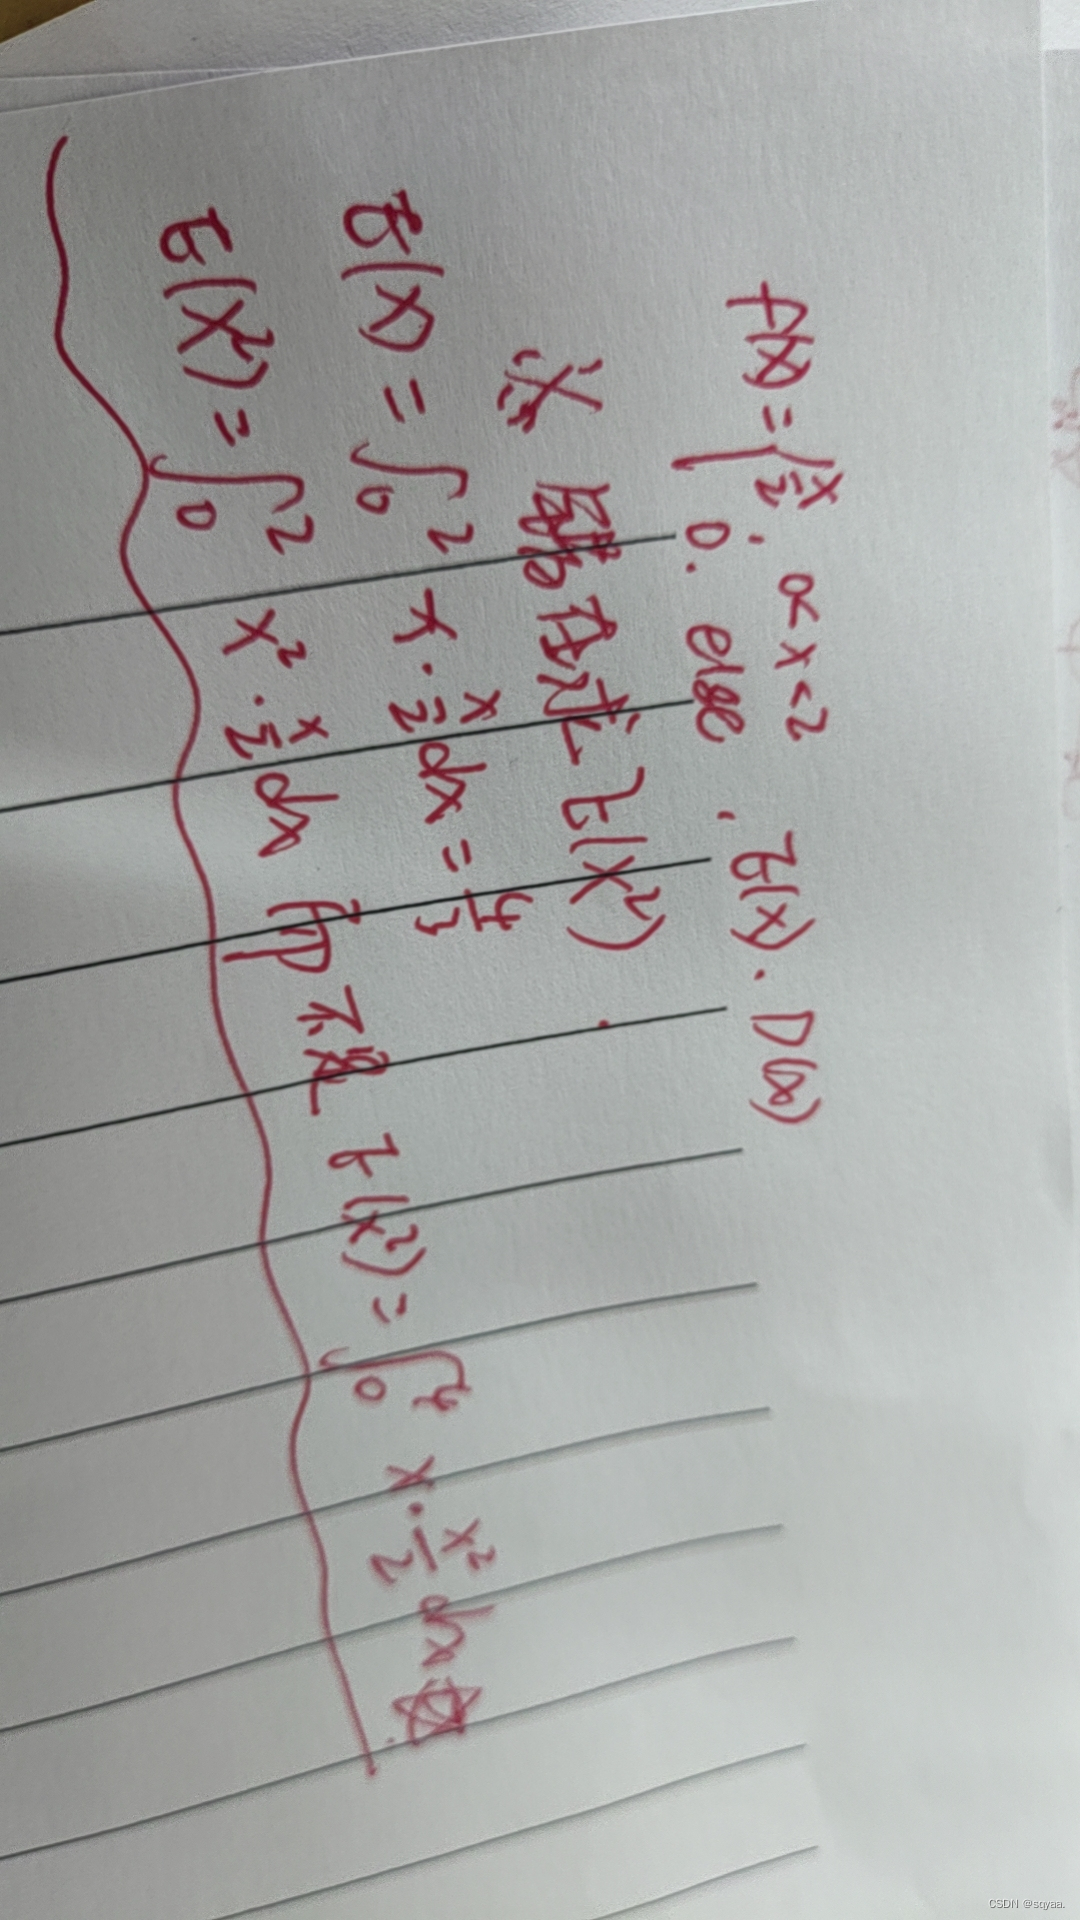 f(x) = { x/2, 0<x<2
0. else , E(x). D(x)
E(x²)
E(x) = ∫₀² x · x/2 dx = 4/3
E(x²) = ∫₀² x² · x/2 dx 而不是 E(x²) = ∫₀⁴ x · x²/2 dx
CSDN @sqyaa.